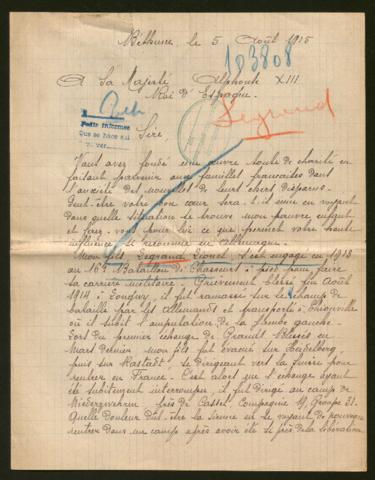 Béthune, le 5 Août 1915
103808
A Sa Majesté Alphonse XIII
Roi d'Espagne.
Legrand
Pedir informes
Que se hace así
Sire
Vous avez fondé une œuvre toute de charité en
faisant parvenir aux familles françaises dans
l'anxiété des nouvelles de leurs chers disparus.
Peut-être votre bon cœur sera-t-il ému en voyant
dans quelle situation se trouve mon pauvre enfant
et ferez-vous pour lui ce que permet votre haute
influence si reconnue en Allemagne.
Mon fils, Legrand Lionel s'est engagé en 1913
au 16e Bataillon de Chasseurs à pied pour faire
sa carrière militaire. Grièvement blessé fin Août
1914 à Longwy, il fut ramassé sur le champ de
bataille par les Allemands et transporté à Thionville
où il subit l'amputation de la jambe gauche.
Lors du premier échange de Grands Blessés en
Mars dernier mon fils fut évacué sur Heidelberg,
puis sur Rastadt, se dirigeant vers la Suisse pour
rentrer en France. C'est alors que l'échange ayant
été subitement interrompu, il fut dirigé au camp de
Niederzwehren près de Cassel Compagnie 11, Groupe 21.
Quelle douleur dût-être la sienne en se voyant de nouveau
rentrer dans un camp après avoir été si près de la libération